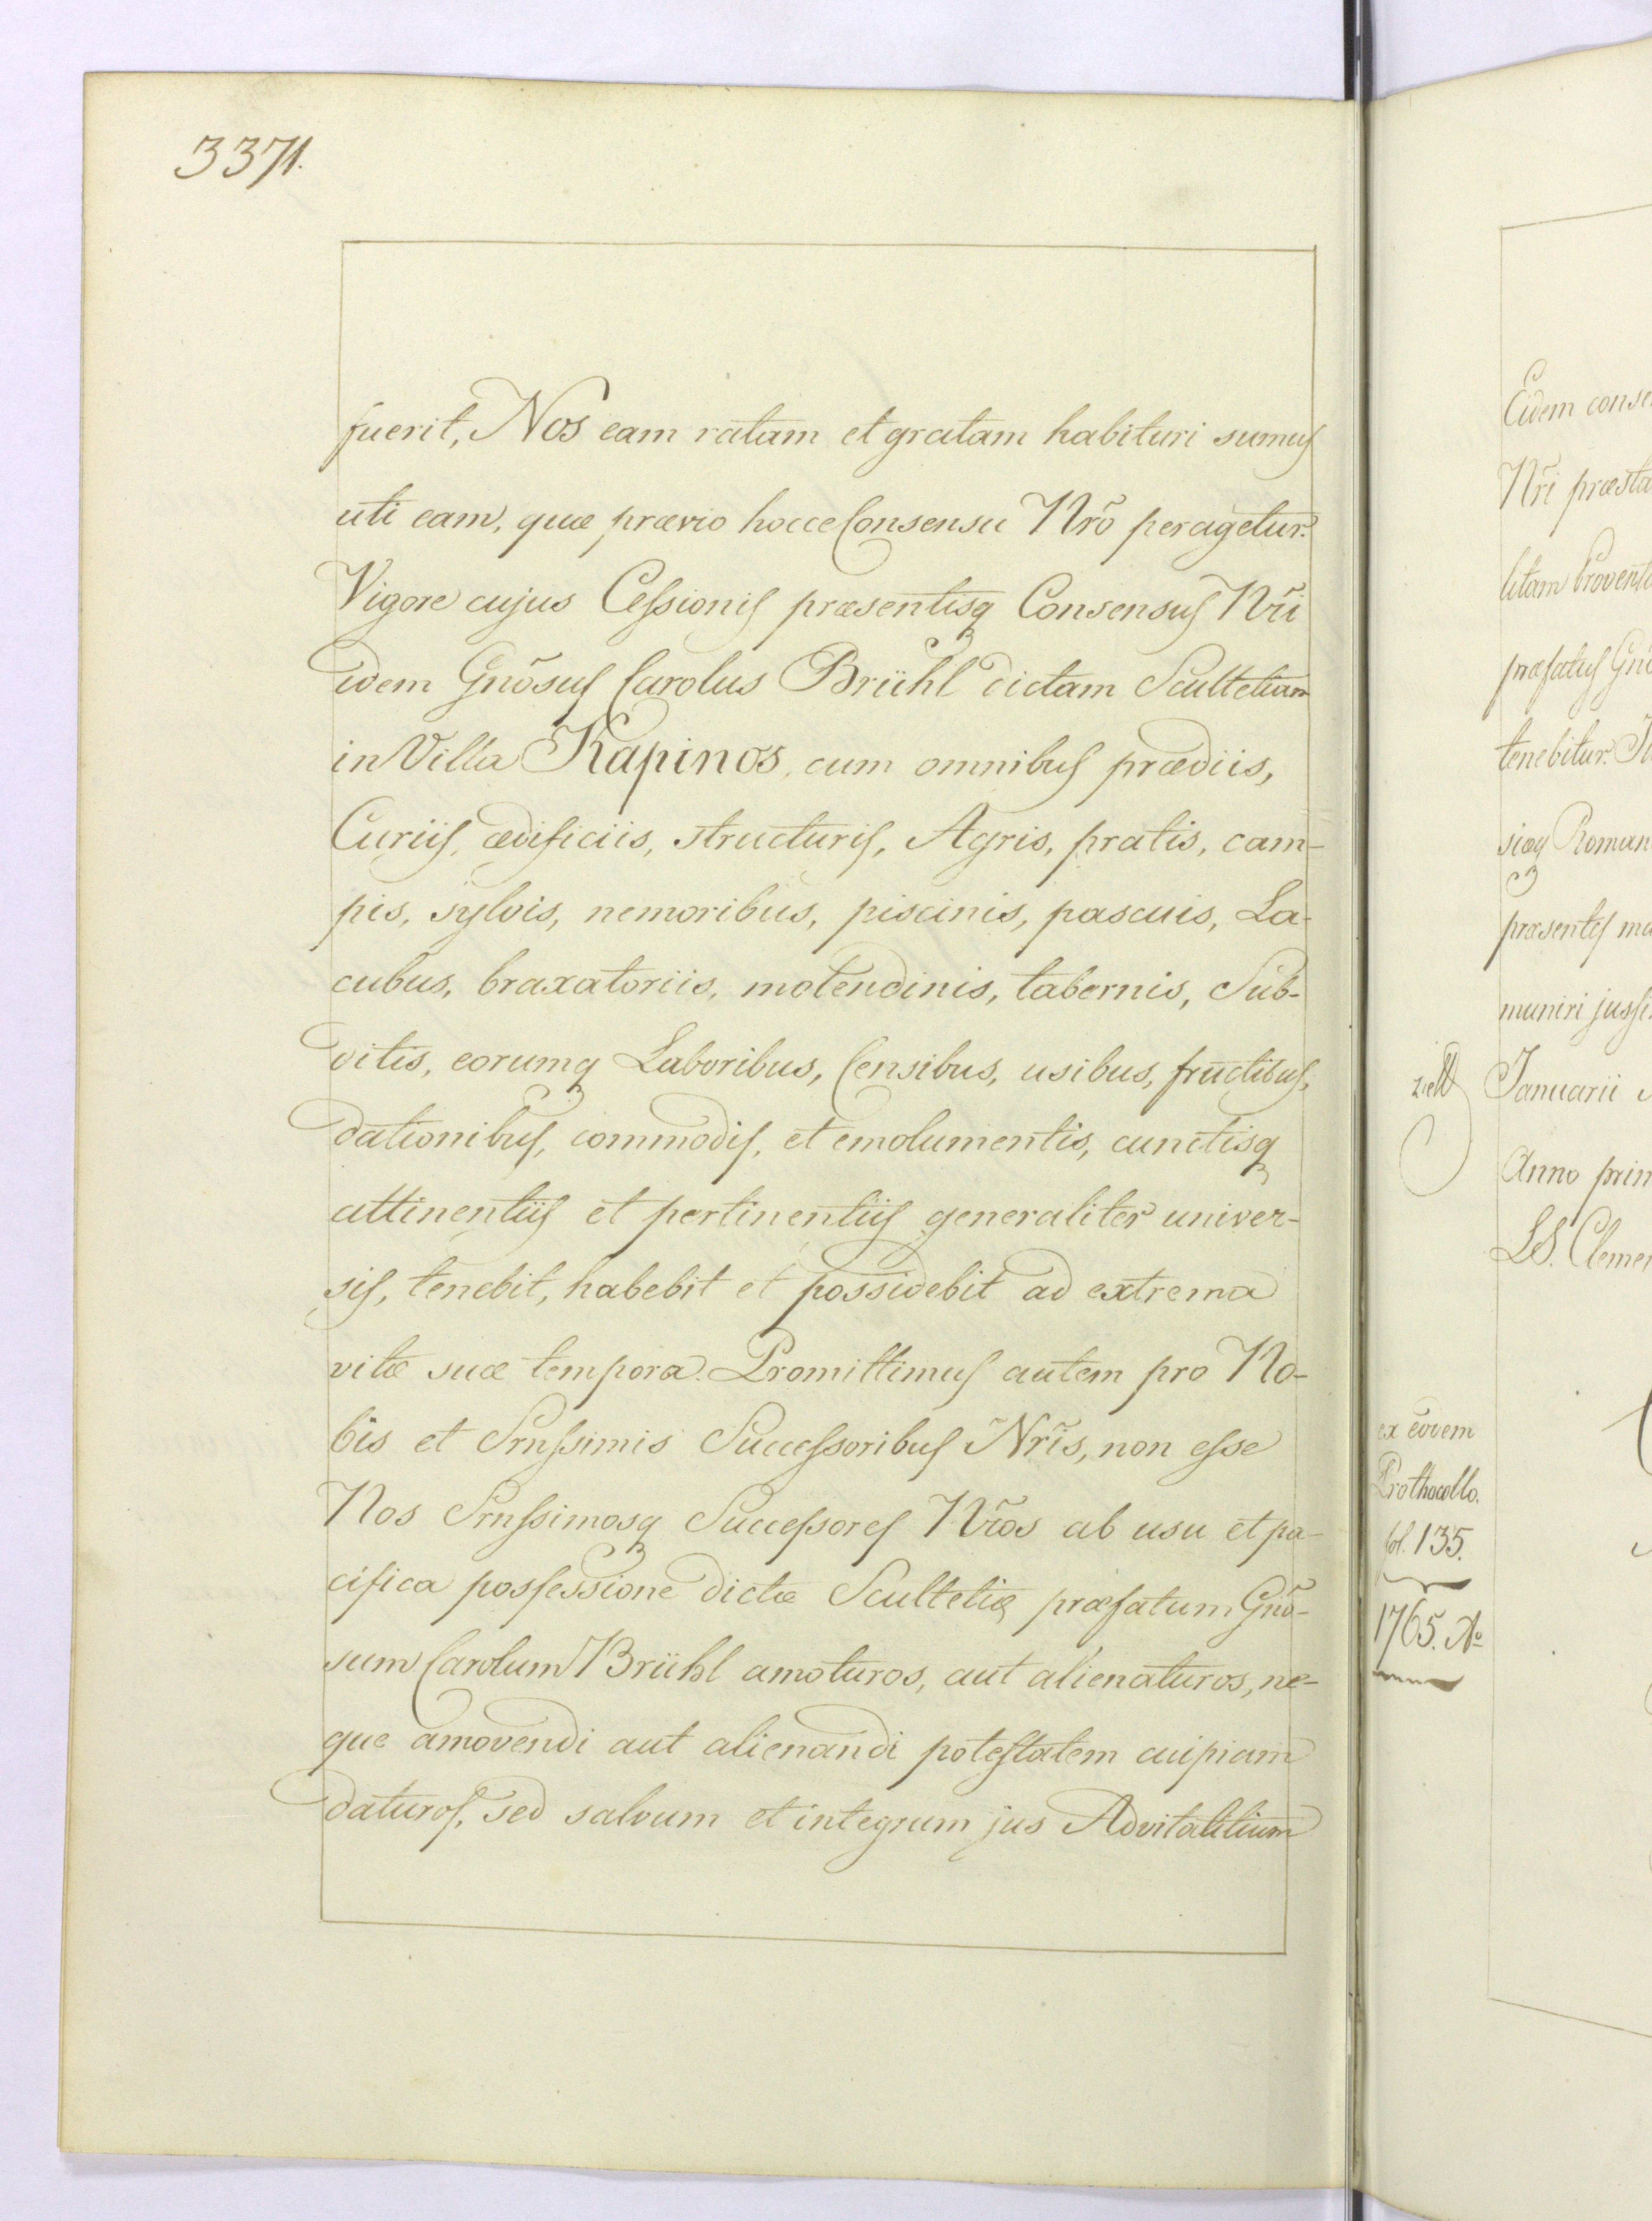 3371.
fuerit, Nos eam ratam et gratam habituri sumus
uti eam, quæ prævio hocce Consensu Nrõ peragetur.
Vigore cujus Cessionis præsentisq Consensus Nri
idem Gnõsus Carolus Brühl dictam Scultetiam
in Villa Kapinos, cum omnibus prædiis,
Curiis, ædificiis, structuris, Agris, pratis, cam-
pis, sylvis, nemoribus, piscinis, pascuis, La-
cubus, braxatoriis, molendinis, tabernis, Sub-
ditis, eorumq Laboribus, Censibus, usibus, fructibus,
dationibus, commodis, et emolumentis, cunctisq
attinentiis et pertinentiis generaliter univer-
sis, tenebit, habebit et possidebit ad extrema
vitæ suæ tempora. Promittimus autem pro No-
bis et Srnssimis Successoribus Nris, non esse
Nos Srnssimosq Successores Nros ab usu et pa-
cifica possessione dictæ Scultetiæ præfatum Gnõ-
sum Carolum Brühl amoturos, aut alienaturos, ne-
que amovendi aut alienandi potestatem cuipiam
daturos, sed salvum et integrum jus Advitalitium
Eidem conse
Nri præsta
litam Provent
præfatus Gnõ
tenebitur.
siæq Roman
præsentes ma
muniri jussi
Januarii
Anno prim
LS. Clemen
ex eodem
Prothocollo.
fol. 135.
1765. Aº